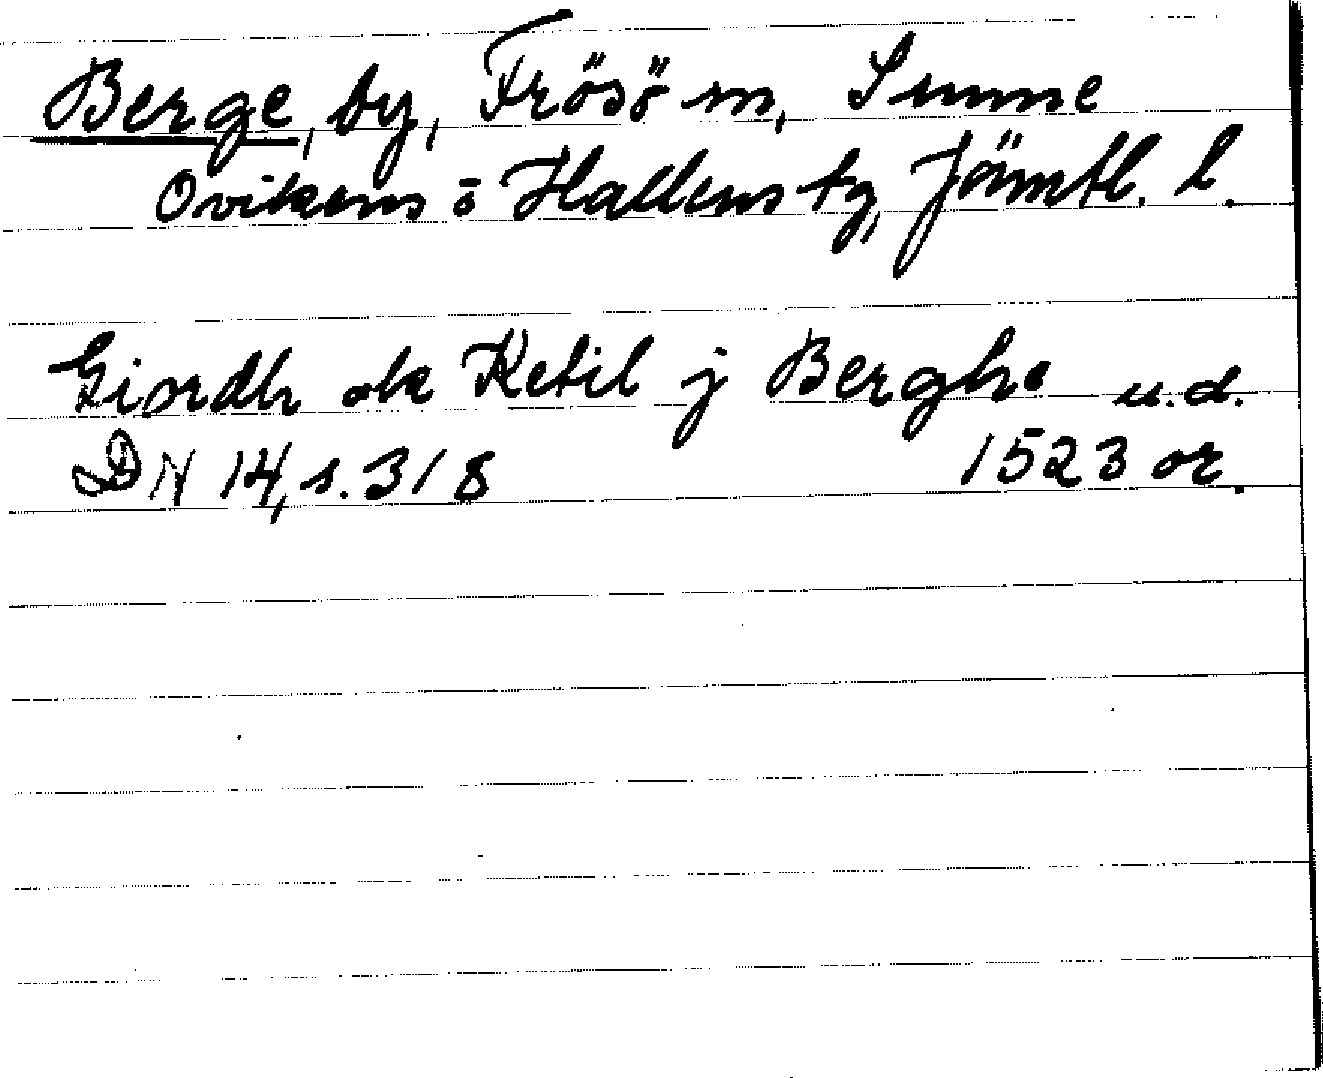 Berge, by, Frösö sn, Sunne
Ovikens o Hallens tg, Jämtl. l.
Giordh ok Ketil j Berghe u.d.
DN 14, s. 318 1523 or.